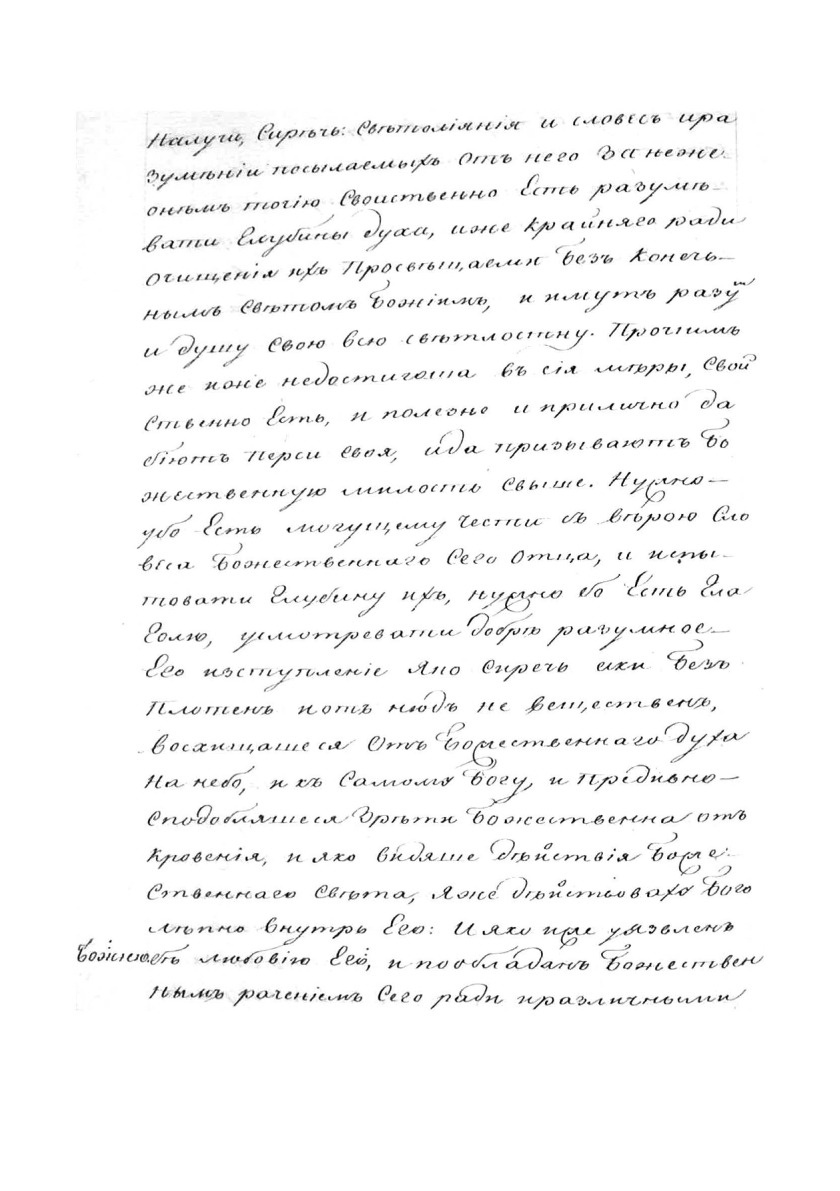 налучи, Сирѣчь: Свѣтолiянiя и словесъ ира
зумѣнiи посылаемыхъ отъ него Занеже
онѣмъ точiю Своиственно Есть разумѣ-
вати Глубины духа, иже крайняго ради
очищенiя ихъ Просвѣщаеми Безъ конечь-
нымъ Свѣтомъ Божiимъ, и имутъ разум
и душу Свою всю свѣтлостну. Прочимъ
же иже недостигоша въ сiя мѣры, Свой
ственно Есть, и полезно и прилично да
бiютъ перси своя, ида призываютъ Бо
жественную милость свыше. Нужно-
убо Есть могущему чести съ вѣрою Сло
веса Божественнаго Сего отца, и испы-
товати Глубину ихъ, нужно бо Есть Гла
Голю, усмотревати добрѣ разумное-
Его изступленiе Яко Сиречь аки Безъ
Плотенъ иотъ нюдъ не вещественъ,
восхищашеся Отъ Божественнаго духа
на небо, икъ Самому Богу, и Предивно-
сподобляшеся Зрѣти Божественна отъ
кровенiя, и яко видяше дѣйствiя Боже-
Ственнаго Свѣта, Яже дѣйствоваху Бого
лѣпно внутрь Его: И яко иже уязвленъ
Божiею любовiю Его, и пообладанъ Божествен
нымъ раченiемъ Сего ради иразличными